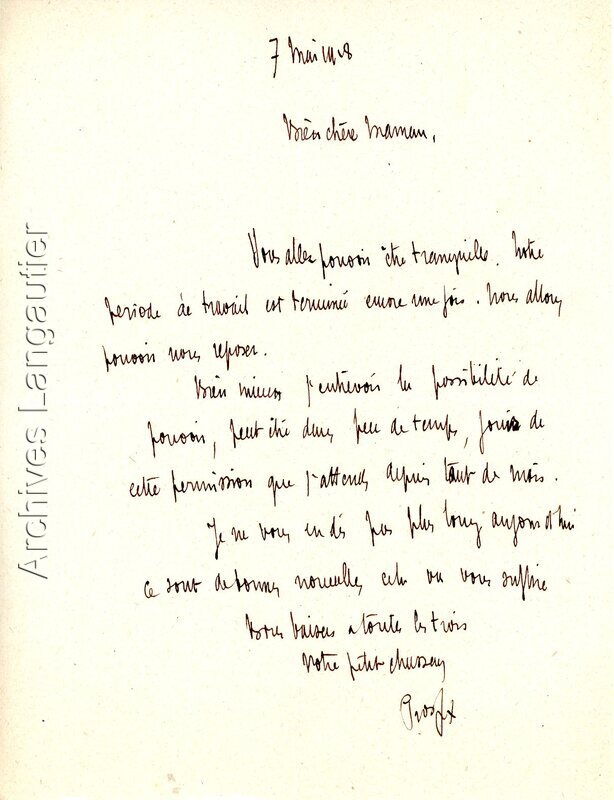 7 Mai 1918
Bien chère Maman,
Vous allez pouvoir être tranquilles. Notre
periode de travail est terminée encore une fois. Nous allons
pouvoir nous reposer.
Bien mieux j'entrevois la possibilité de
pouvoir, peut être dans peu de temps, jouir de
cette permission que j'attends depuis tant de mois.
Je ne vous en dis pas plus long aujourd'hui
ce sont de bonnes nouvelles cela va vous suffire
Bons baisers a toutes les trois
Votre petit chasseur
Archives Langautier